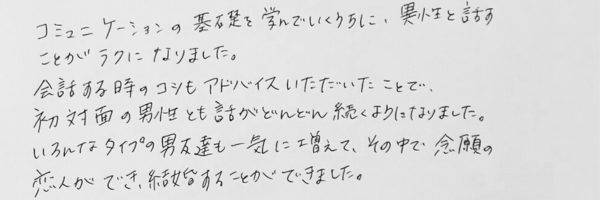 コミュニケーションの基礎を学んでいくうちに、異性と話す
ことがラクになりました。
会話する時のコツもアドバイスいただいたことで、
初対面の男性とも話がどんどん続くようになりました。
いろんなタイプの男友達も一気に増えて、その中で念願の
恋人ができ、結婚することができました。